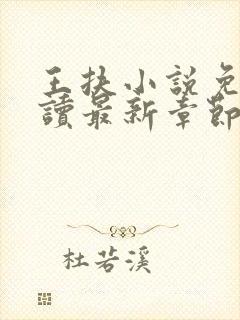 王扶小說免
讀最新章節
杜若溪